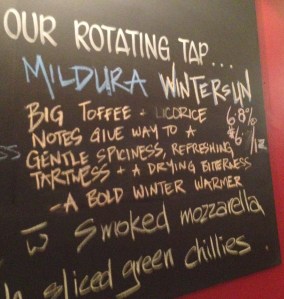 OUR ROTATING TAP....
MILDURA WINTERSUN
BIG TOFFEE + LICORICE 6.8%
NOTES GIVE WAY TO A $6
GENTLE SPICINESS, REFRESHING
TARTNESS + A DRYING BITTERNESS
- A BOLD WINTER WARMER
w smoked mozzarella
sliced green chillies.